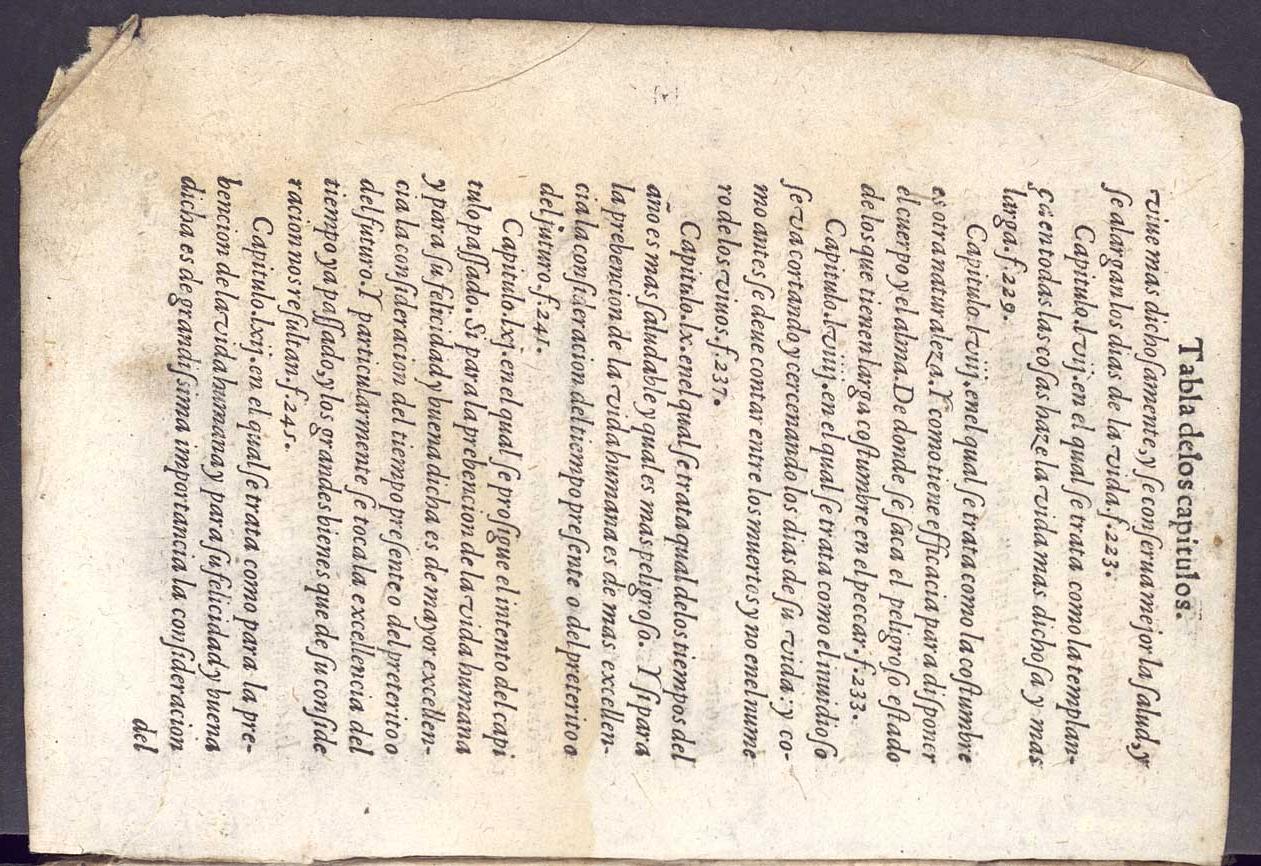 Tabla de los capitulos.
viue mas dichosamente, y se conserua mejor la salud, y
se alargan los dias de la vida. f. 223.
Capitulo. lvij. en el qual se trata como la templan-
ça en todas las cosas haze la vida mas dichosa y mas
larga. f. 229.
Capitulo. lviij. en el qual se trata como la costumbre
es otra naturaleza. Y como tiene efficacia para disponer
el cuerpo y el alma. De donde se saca el peligroso estado
de los que tienen larga costumbre en el peccar. f. 233.
Capitulo. lviiij. en el qual se trata como el inuidioso
se va cortando y cercenando los dias de su vida: y co-
mo antes se deue contar entre los muertos y no en el nume
ro de los viuos. f. 237.
Capitulo. lx. en el qual se trata qual de los tiempos del
año es mas saludable y qual es mas peligroso. Y si para
la prebencion de la vida humana es de mas excellen-
cia la consideracion del tiempo presente o del preterito o
del futuro. f. 241.
Capitulo. lxj. en el qual se prosigue el intento del capi
tulo passado. Si para la prebencion de la vida humana
y para su felicidad y buena dicha es de mayor excellen-
cia la consideracion del tiempo presente o del preterito o
del futuro. Y particularmente se toca la excellencia del
tiempo ya passado, y los grandes bienes que de su conside
racion nos resultan. f. 245.
Capitulo. lxij. en el qual se trata como para la pre-
bencion de la vida humana y para su felicidad y buena
dicha es de grandissima importancia la consideracion
del